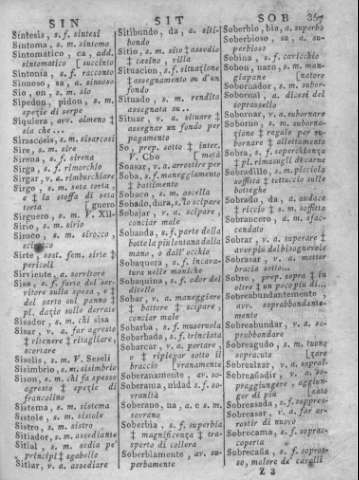 SIN
SIT
SOB
Sintesis, s. f. sintesi
Sintoma, s. m. sintomo
Sintomático, ca, add.
sintomatico [succinto
Sintonía, s. f. racconto
Sinuoso, sa, a. sinuoso
Sio, on, s. m. sio
Sipedon, pidon, s. m.
spezie di serpe
Siquiera, avv. almeno ‡
sia che ...
Sirascosis, s. m. sisarcosi
Sire, s. m. sire
Sirena, s. f. sirena
Sirga, s. f. rimorchio
Sirgar, v. a. rimburchiare
Sirgo, s. m. seta torta,
e ‡ la stoffa di seta
torta
Sirguero, s. m. V. Xil-
Sirio, s. m. sirio
Siroco, s. m. sirocco
Sirte, sost. fem. sirte ‡
pericoli
Sirviente, a. servitore
Sisa, s. f. furto del ser-
vitore sulla spesa, e ‡
del sarto sul panno ‡
pl. dazio sulle derrate
Sisador, s. m. chi sisa
Sisar, v. a. far agresto
‡ ritenere ‡ ritagliare,
scortare
Siselis, s. m. V. Seseli
Sisimbrio, s. m. sisimbrio
Sison, s. m. chi fa spesso
agresto ‡ spezie di
francolino
Sistema, s. m. sistema
Sistole, s. m. sistole
Sistro, s. m. sistro
Sitiador, s. m. assediante
Sitial, s. m. sedia pe'
principi ‡ sgabello
Sitiar, v. a. assediare
Sitibundo, da, a. siti-
bondo
Sitio, s. m. sito ‡ assedio
‡ casino, villa
Situacion, s. f. situazione
‡ assegnamento su d'un
fondo
Situado, s. m. rendita
assegnata su...
Situar, v. a. situare ‡
assegnar un fondo per
pagamento
So, prep. sotto ‡ inter.
V. Cho [metà
Soasar, v. a. arrostire per
Soba, s. f. maneggiamento
‡ battimento
Sobaco, s. m. ascella
Sobado, dura, s. lo scipare
Sobajar, v. a. scipare,
conciar male
Sobanda, s. f. parte della
botte la più lontana dalla
mano, o dall' occhio
Sobaquera, s. f. incava-
tura nelle maniche
Sobaquina, s. f. odor del
divelle
Sobar, v. a. maneggiare
‡ battere ‡ scipare,
conciar male
Sobarba, s. f. museruola
Sobarbada, s. f. trinciata
Sobarcar, v. a. portare,
e ‡ piegar sotto il
braccio vranamente
Soberanamente, av. so-
Soberana, unidad s. f. so-
vranità
Soberano, na, a. e s. m.
sovrano
Soberbia, s. f. superbia
‡ magnificenza ‡ tra-
sporto di collera
Soberbiamente, av. su-
perbamente
Soberbio, bia, a. superbo
Soberbioso, sa, a. su-
perbioso
Sobina, s. f. cavicchio
Sobon, nazo, s. m. man-
giapane [natore
Sobornador, s. m. subor-
Sobornal, a. dicesi del
soprassello
Sobornar, v. a. subornare
Soborno, s. m. suborna-
zione ‡ regalo per su-
bornare ‡ allettamento
Sobra, s. f. soperchianza
‡ pl. rimasugli di carne
Sobradillo, s. m. picciola
soffitta ‡ tettuccio sulle
botteghe
Sobrado, da, a. audace
‡ ricco ‡ s. m. soffitta
Sobrancero, a. m. sfac-
cendato
Sobrar, v. a. superare ‡
averpiù del bisognevole
Sobrasar, v. a. metter
bracia sotto...
Sobre, prep. sopra ‡ in
oltre ‡ un poco più di...
Sobreabundantemente,
avv. soprabbondante-
mente
Sobreabundar, v. a. so-
prabbondare
Sobreagudo, s. m. tuono
sopracuto
Sobrealzar, v. a. sopral-
Sobreañadir, v. a. so-
praggiungere
ger di più
Sobreasada, s. f.
Sobreasar, v. a. far ar-
rostir di nuovo
Sobrecama, s. f. soprac-
coperta
Sobrecaña, s. f. sopras-
so, malore de' cavalli
Z 3